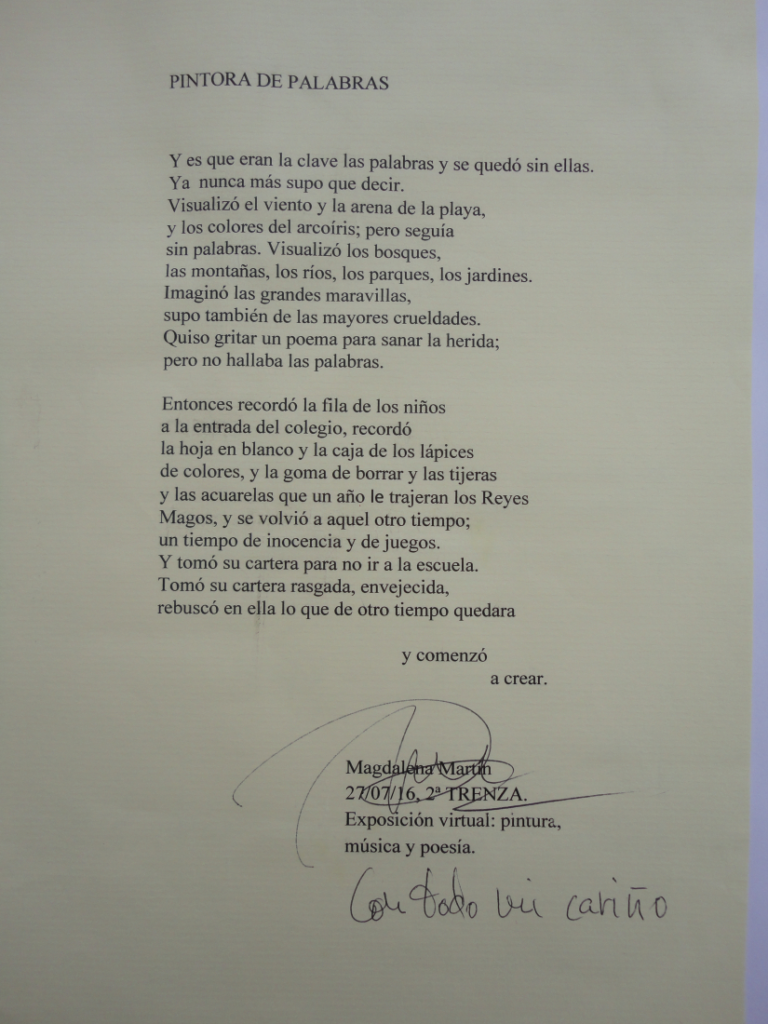 PINTORA DE PALABRAS
Y es que eran la clave las palabras y se quedó sin ellas.
Ya nunca más supo que decir.
Visualizó el viento y la arena de la playa,
y los colores del arcoíris; pero seguía
sin palabras. Visualizó los bosques,
las montañas, los ríos, los parques, los jardines.
Imaginó las grandes maravillas,
supo también de las mayores crueldades.
Quiso gritar un poema para sanar la herida;
pero no hallaba las palabras.
Entonces recordó la fila de los niños
a la entrada del colegio, recordó
la hoja en blanco y la caja de los lápices
de colores, y la goma de borrar y las tijeras
y las acuarelas que un año le trajeran los Reyes
Magos, y se volvió a aquel otro tiempo;
un tiempo de inocencia y de juegos.
Y tomó su cartera para no ir a la escuela.
Tomó su cartera rasgada, envejecida,
rebuscó en ella lo que de otro tiempo quedara
y comenzó
a crear.
Magdalena Martín
27/07/16, 2ª TRENZA.
Exposición virtual: pintura,
música y poesía.
Con todo mi cariño